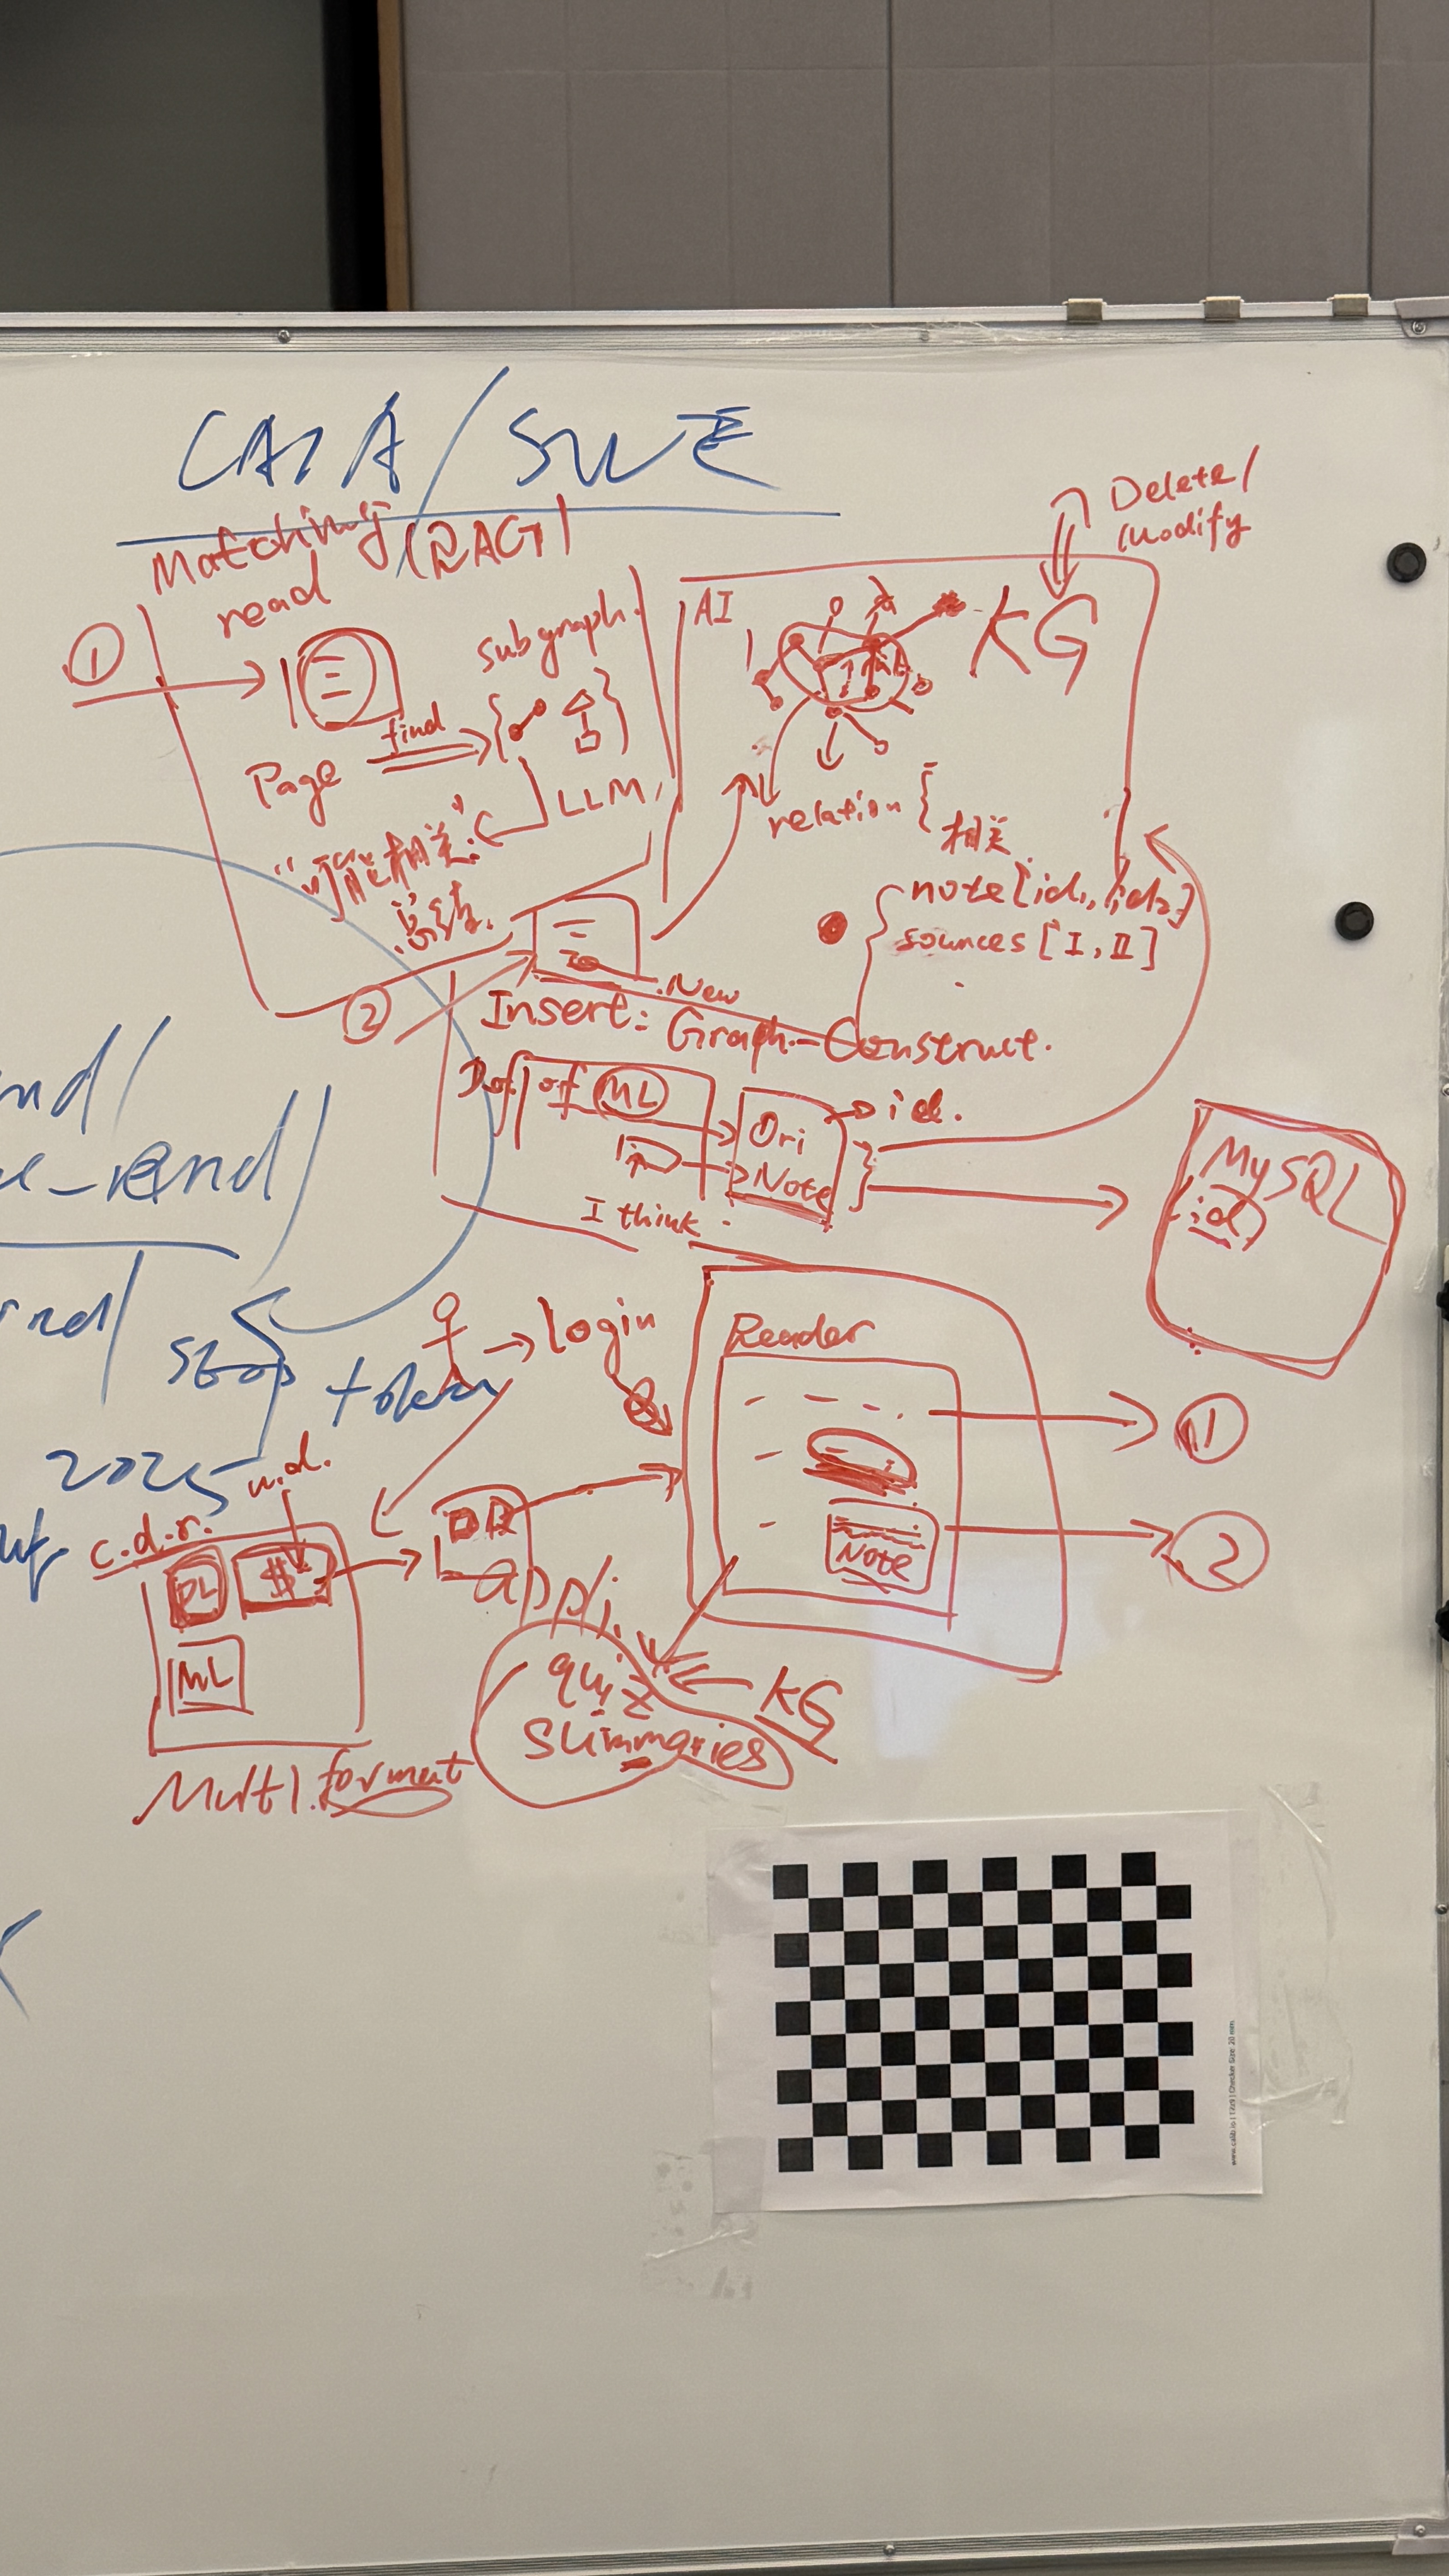 CAIA/SWE
Matching (RAG)
read
①
subgraph.
AI
KG
Delete/
modify
Page
find
LLM
"可能相关"
总结.
relation {
相关
note [id₁, id₂]
sources [I, II]
②
New
Insert: Graph-Construct.
Def of ML
Ori
Note
id.
I think.
MySQL
(id)
nd/
e-end/
end/
stop
token
2025
login
Reader
Note
①
②
u.d.
c.d.r.
DL
$
ML
Multi.format
appli.
quiz
summaries
KG